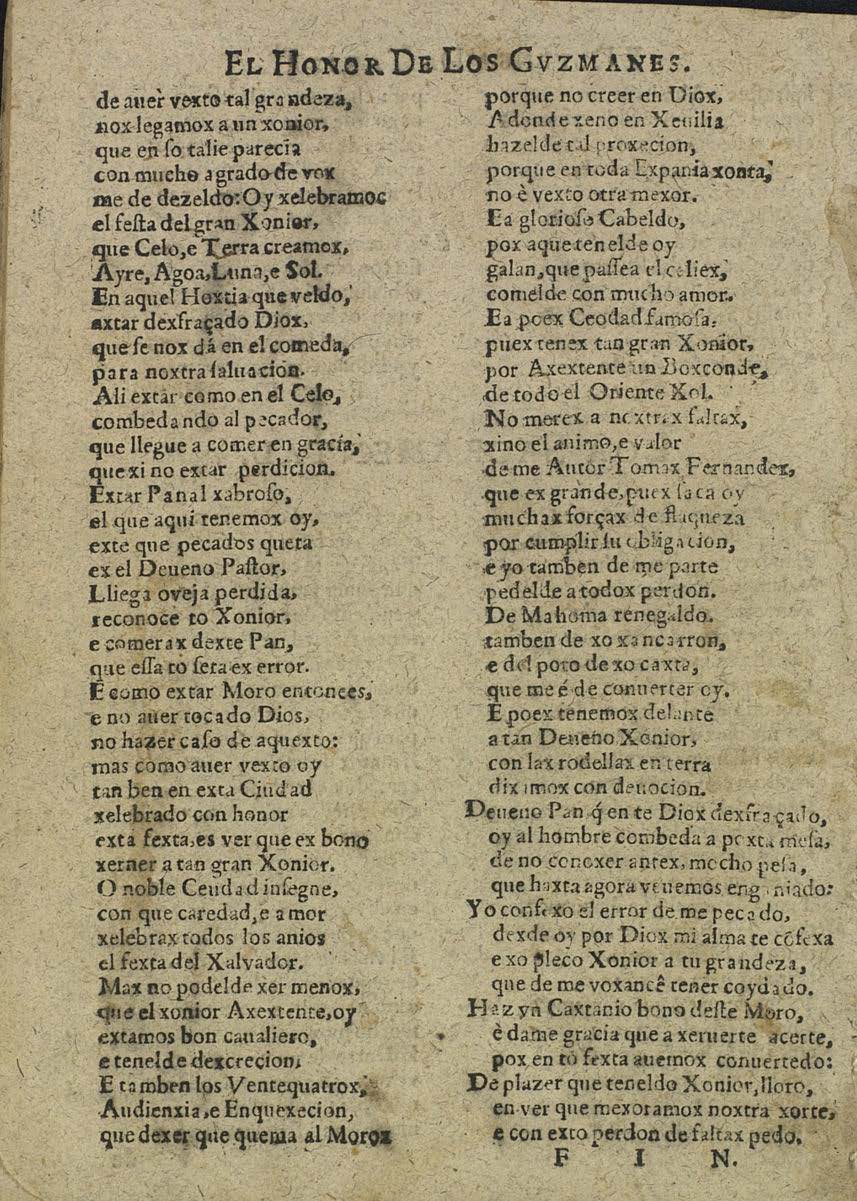 EL HONOR DE LOS GVZMANES.
de auer vexto tal grandeza,
nox legamox a un xonior,
que en ſo talie parecia
con mucho agrado de vox
me de dezeldo: Oy xelebramoc
el feſta del gran Xonior,
que Celo, e Terra creamox,
Ayre, Agoa, Luna, e Sol.
En aquel Hoxtia que veldo,
axtar dexfraçado Diox,
que ſe nox dá en el comeda,
para noxtra ſaluacion.
Ali extar como en el Celo,
combedando al pecador,
que llegue a comer en gracia,
que xi no extar perdicion.
Extar Panal xabroſo,
el que aqui tenemox oy,
exte que pecados queta
ex el Deueno Paſtor,
Lliega oveja perdida,
reconoce to Xonior,
e comerax dexte Pan,
que eſſa to ſeta ex error.
E como extar Moro entonces,
e no auer tocado Dios,
no hazer caſo de aquexto:
mas como auer vexto oy
tan ben en exta Ciudad
xelebrado con honor
exta fexta, es ver que ex bono
xerner a tan gran Xonior.
O noble Ceudad inſegne,
con que caredad, e amor
xelebrax todos los anios
el fexta del Xalvador.
Max no podelde xer menox,
que el xonior Axextente, oy
extamos bon caualiero,
e tenelde dexcrecion.
E tamben los Ventequatrox,
Audienxia, e Enquexecion,
que dexer que quema al Morox
porque no creer en Diox,
A donde xeno en Xeuilia
hazelde tal proxecion,
porque en toda Expania xonta,
no è vexto otra mexor.
Ea glorioſo Cabeldo,
pox aque tenelde oy
galan, que paſſea el celiex,
comelde con mucho amor.
Ea poex Ceodad famoſa,
puex tenex tan gran Xonior,
por Axextente un Boxconde,
de todo el Oriente Xol.
No merex a noxtrax faltax,
xino el animo, e valor
de me Autor Tomax Fernandex,
que ex grande, puex ſaca oy
muchax forçax de flaqueza
por cumplir ſu obligacion,
e yo tamben de me parte
pedelde a todox perdon.
De Mahoma renegaldo.
tamben de xo xancarron,
e del poto de xo caxta,
que me é de conuerter oy.
E poex tenemox delante
a tan Deueno Xonior,
con lax rodellax en terra
diximox con deuocion.
Deueno Pan q́ en te Diox dexfraçado,
oy al hombre combeda a poxta meſa,
de no conoxer antex, mocho peſa,
que haxta agora veuemos enganiado:
Yo confexo el error de me pecado,
dexde oy por Diox mi alma te cõfexa
e xo pleco Xonior a tu grandeza,
que de me voxancê tener coydado.
Haz vn Caxtanio bono deſte Moro,
è dame gracia que a xeruerte acerte,
pox en to fexta auemox conuertedo:
De plazer que teneldo Xonior, lloro,
en ver que mexoramox noxtra xorte,
e con exto perdon de faltax pedo.
F I N.